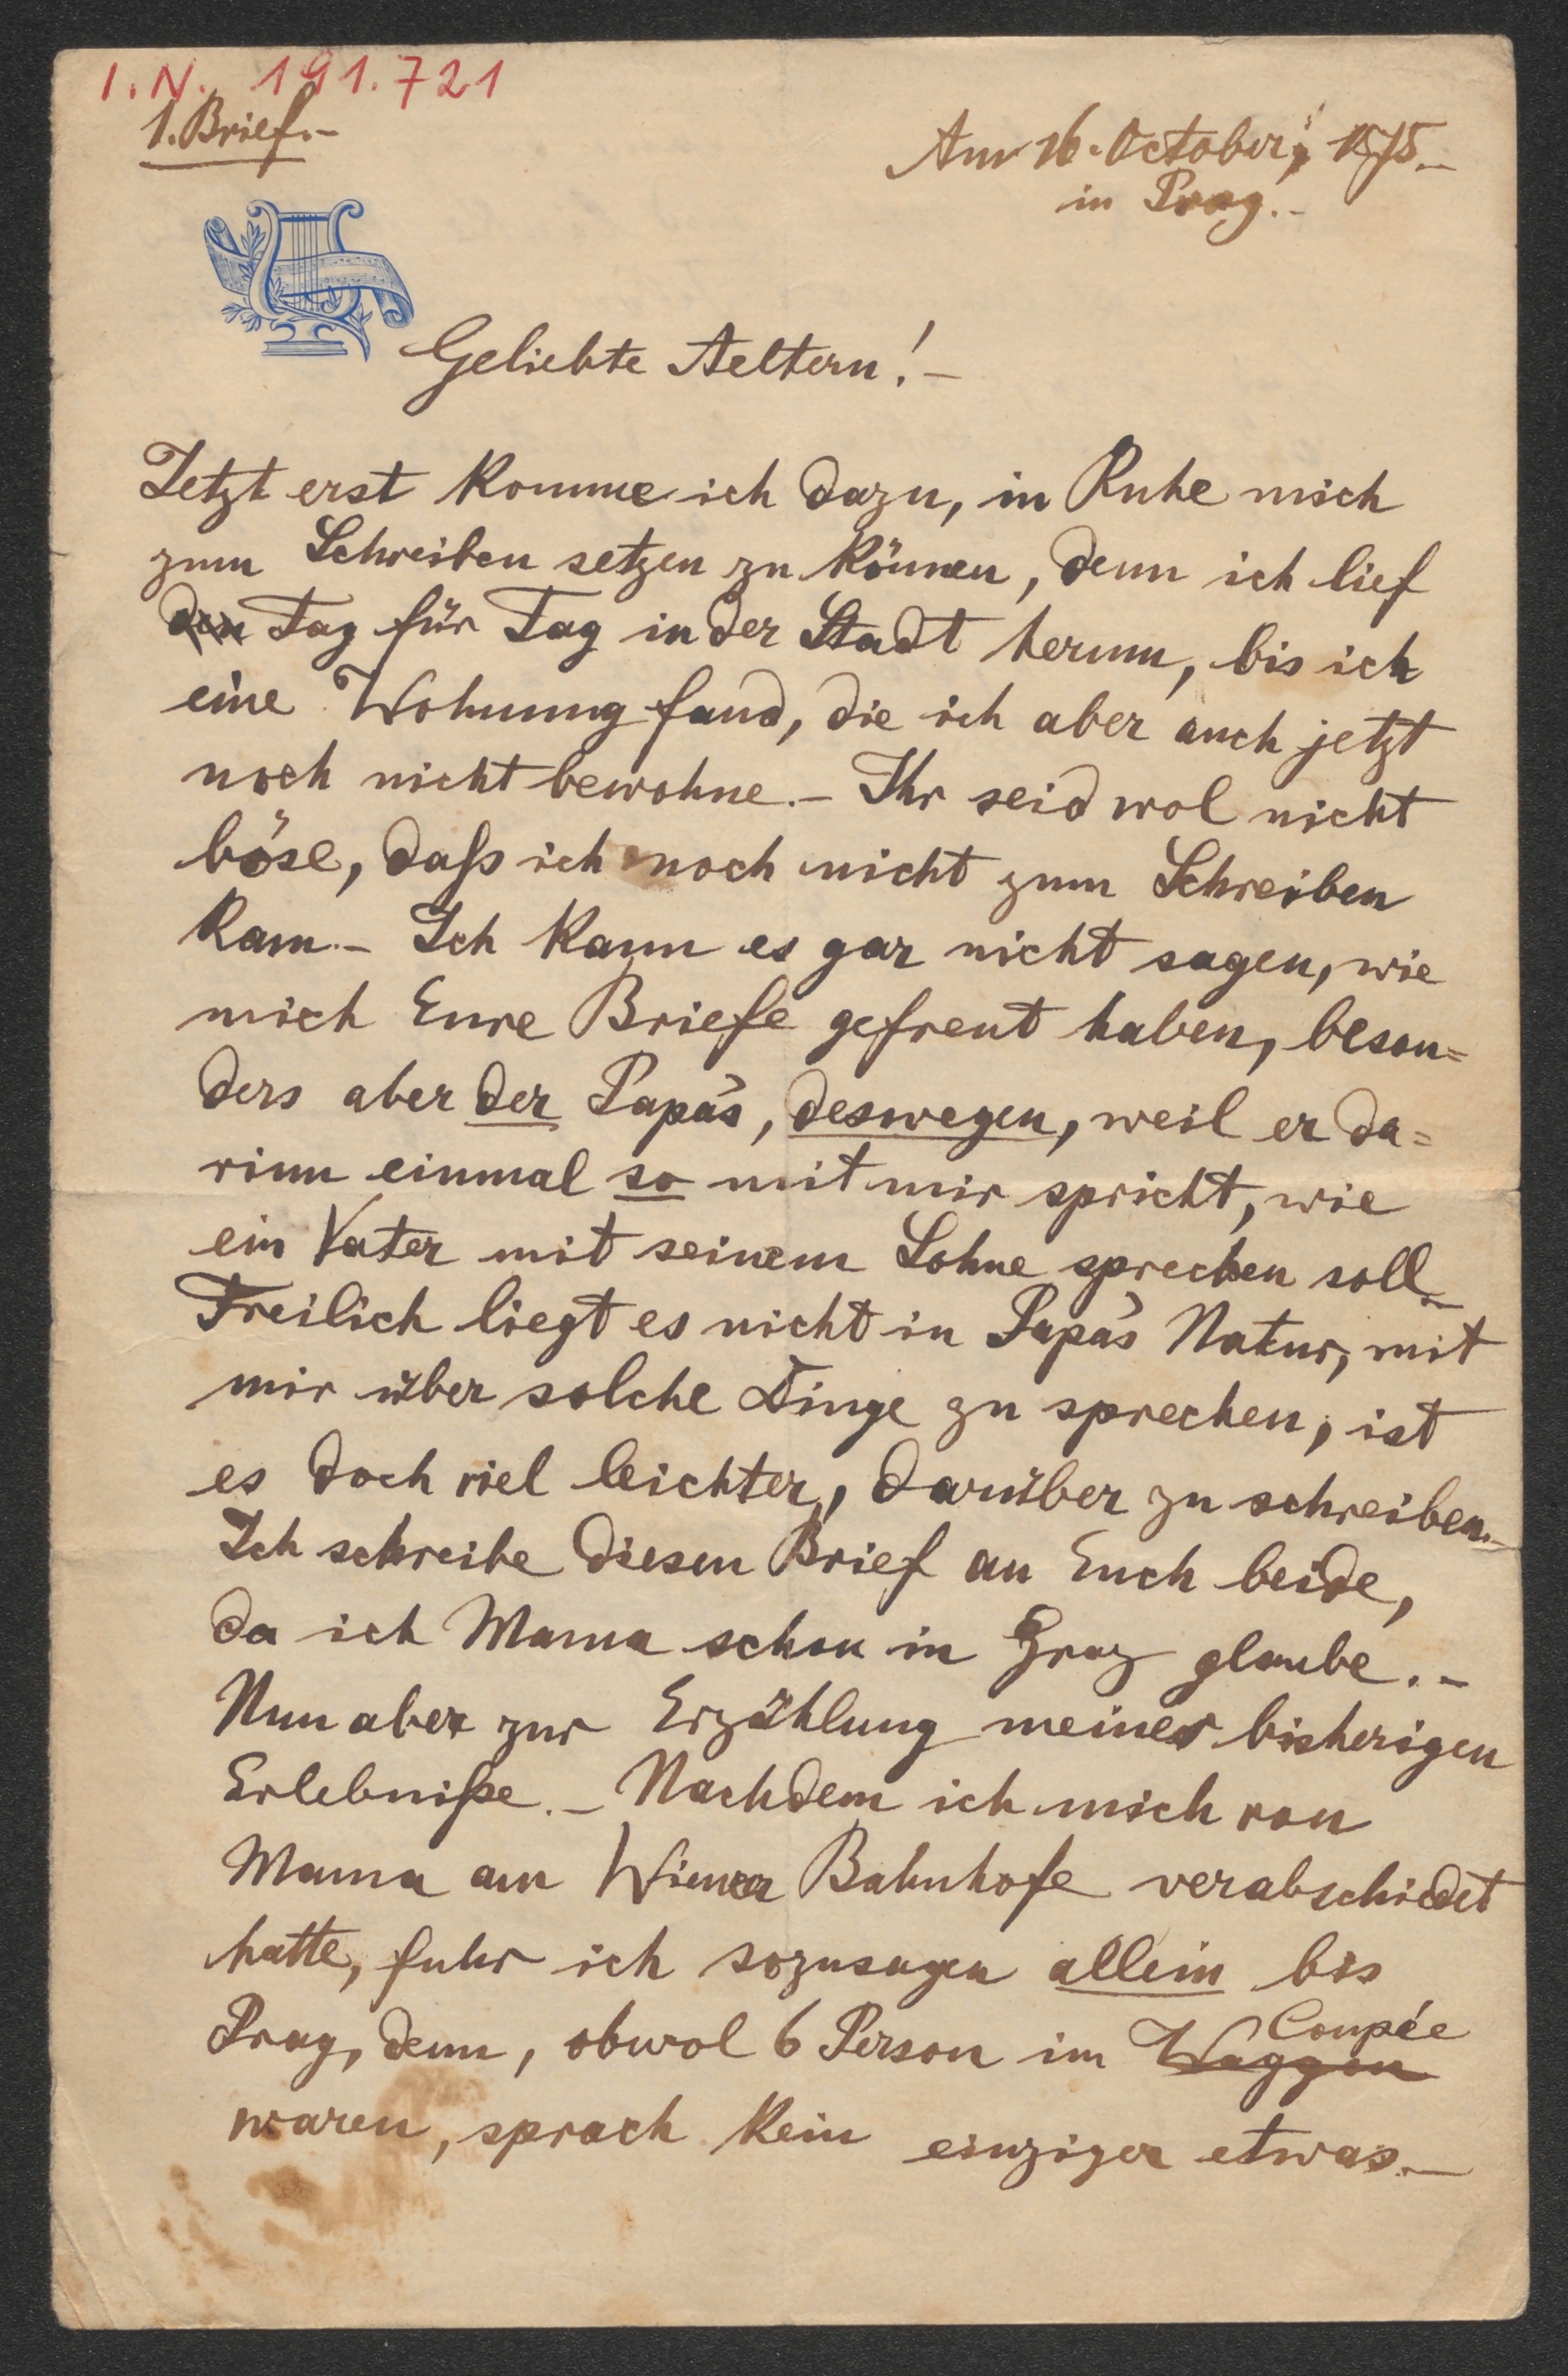 I.N. 191.721
1. Brief.-
Am 16. October, 1875.-
in Prag.-
Geliebte Aeltern!-
Jetzt erst komme ich dazu, in Ruhe mich
zum Schreiben setzen zu können, denn ich lief
den Tag für Tag in der Stadt herum, bis ich
eine Wohnung fand, die ich aber auch jetzt
noch nicht bewohne.- Ihr seid wol nicht
böse, daſs ich noch nicht zum Schreiben
kam.- Ich kann es gar nicht sagen, wie
mich Eure Briefe gefreut haben, beson=
ders aber der Papa's, deswegen, weil er da=
rinn einmal so mit mir spricht, wie
ein Vater mit seinem Sohne sprechen soll.-
Freilich liegt es nicht in Papa's Natur, mit
mir über solche Dinge zu sprechen, ist
es doch viel leichter, darüber zu schreiben.-
Ich schreibe diesen Brief an Euch beide,
da ich Mama schon in Graz glaube.-
Nun aber zur Erzählung meiner bisherigen
Erlebniſse.- Nachdem ich mich von
Mama am Wiener Bahnhofe verabschiedet
hatte, fuhr ich sozusagen allein bis
Prag, denn, obwol 6 Person im Waggon Coupée
waren, sprach kein einziger etwas.-